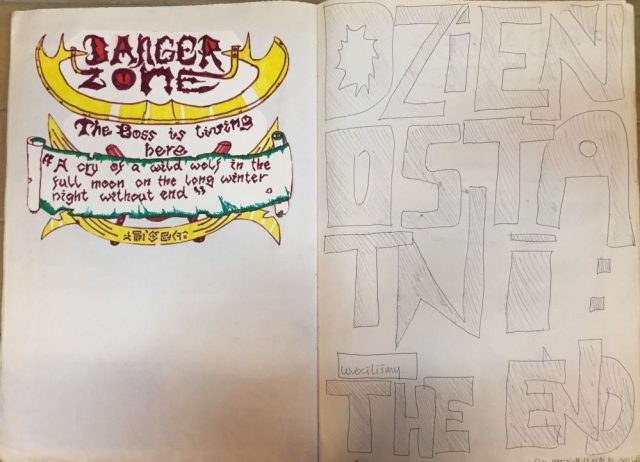 DANGER
ZONE
The Boss is living
here
"A cry of a wild wolf in the
full moon on the long winter
night without end"
DZIEN
OSTA
TNI :
wrociliśmy
THE END